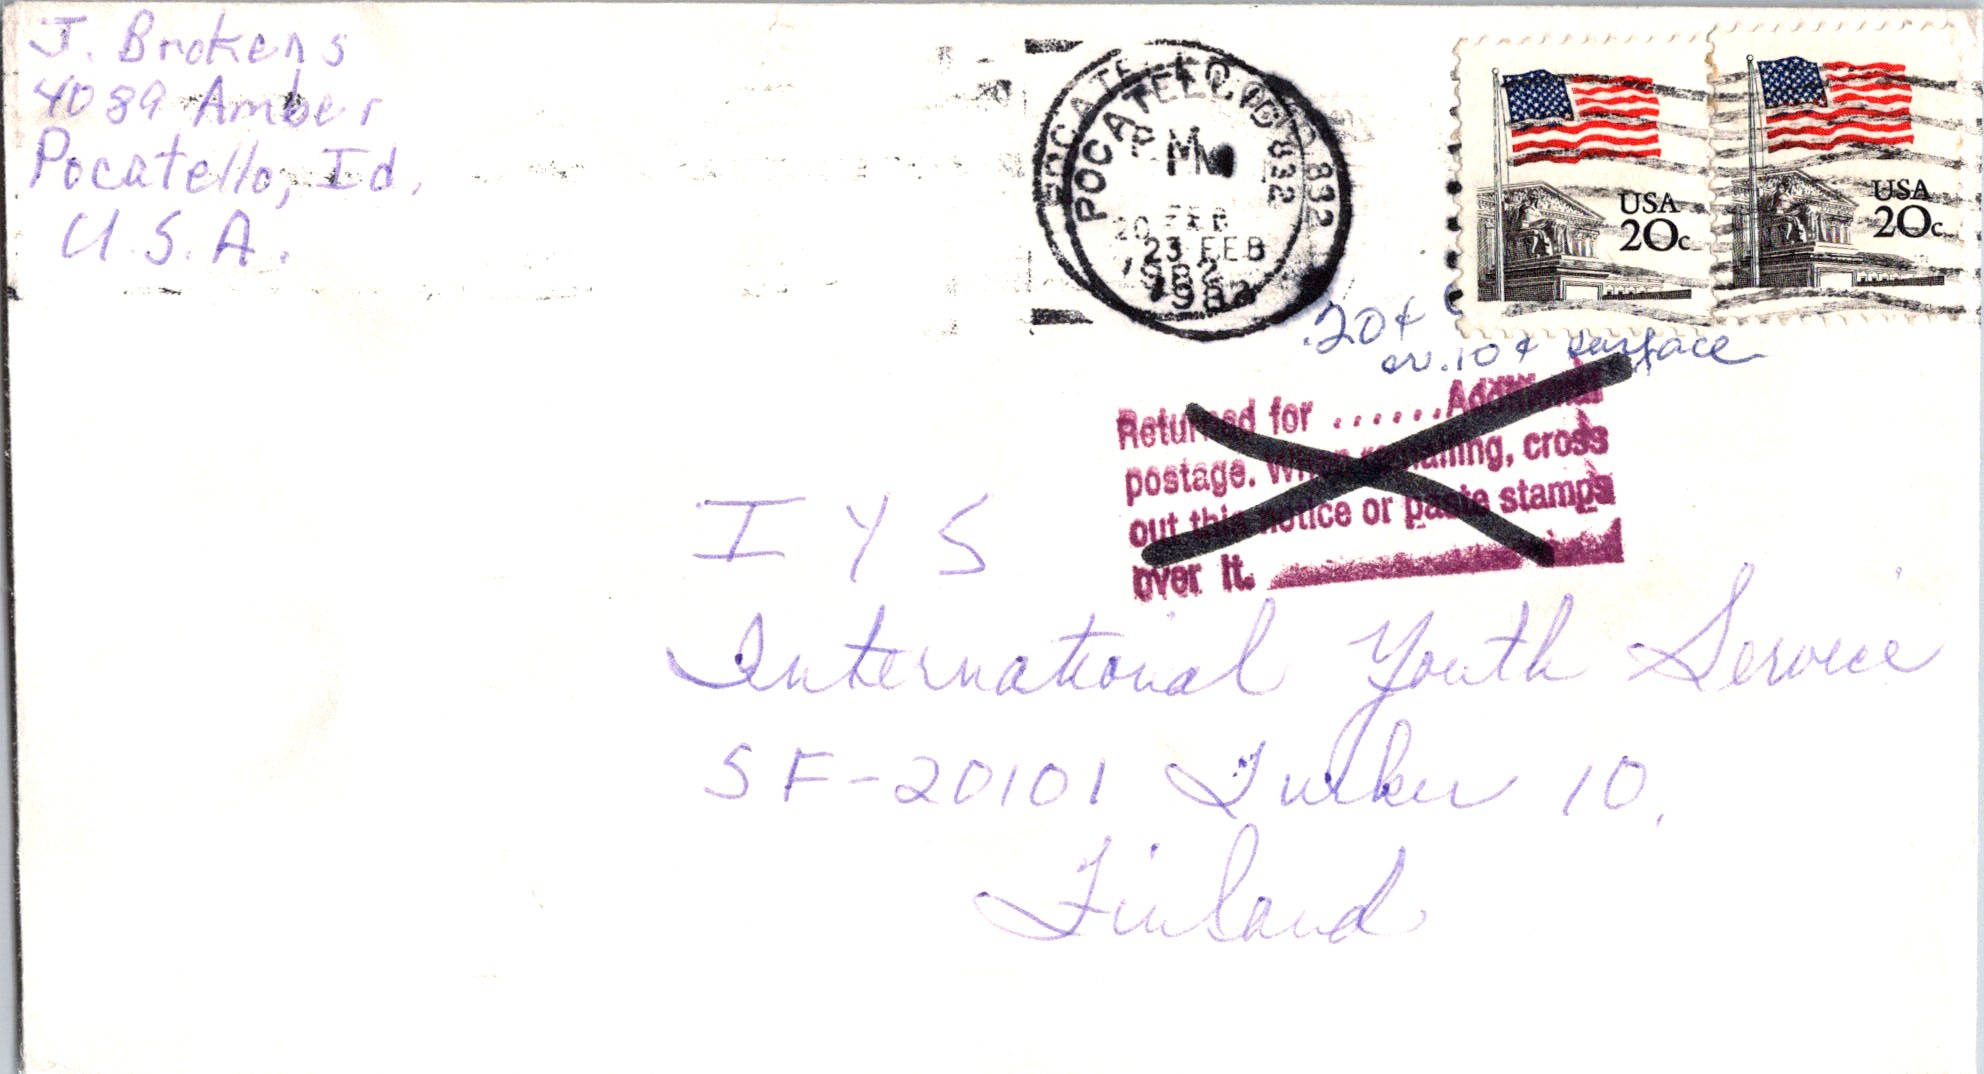 J. Brokens
4089 Amber
Pocatello, Id.
U.S.A.
POCATELLO, ID 832
POCATELLO, ID 832
PM
20 FEB
1982
23 FEB
1982
USA
20c
USA
20c
.20¢
or .10¢ surface
Returned for ......Additional
postage. When remailing, cross
out this notice or paste stamps
over it.
I Y S
International Youth Service
SF-20101 Turku 10,
Finland